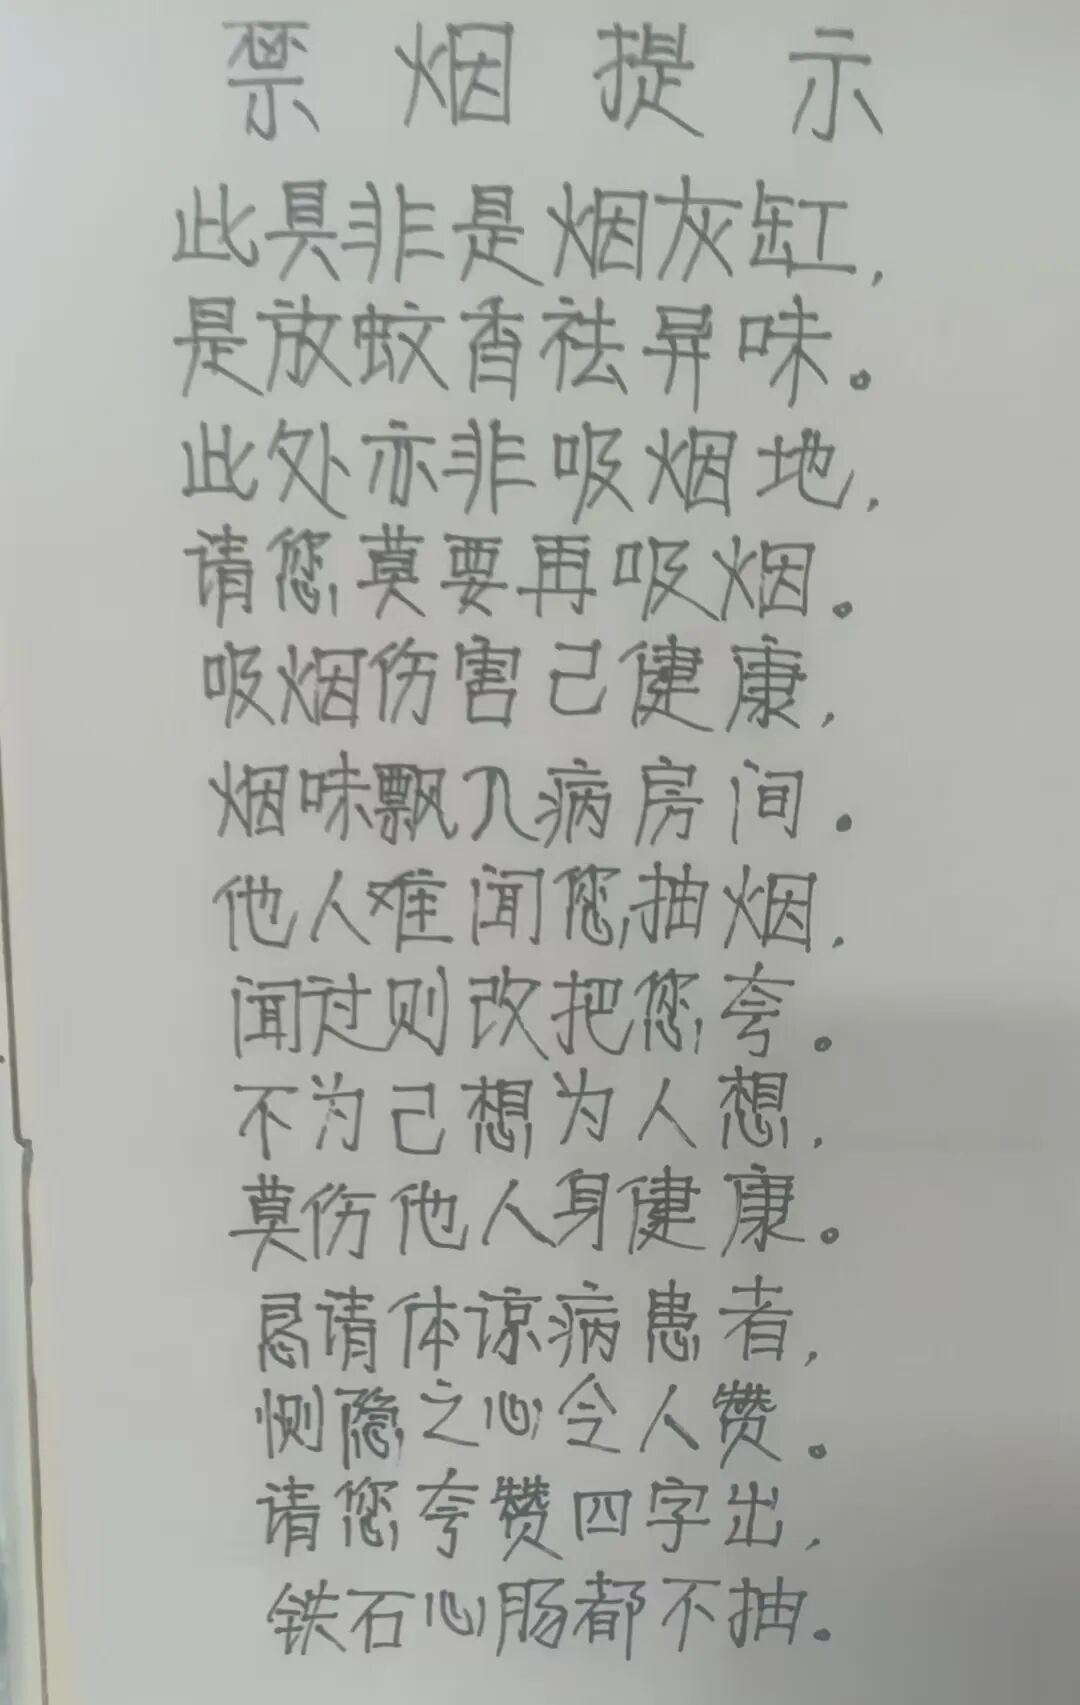 禁烟提示
此具非是烟灰缸,
是放蚊香祛异味。
此处亦非吸烟地,
请您莫要再吸烟。
吸烟伤害己健康,
烟味飘入病房间。
他人难闻您抽烟,
闻过则改把您夸。
不为己想为人想,
莫伤他人身健康。
恳请体谅病患者,
恻隐之心令人赞。
请您夸赞四字出,
铁石心肠都不抽。